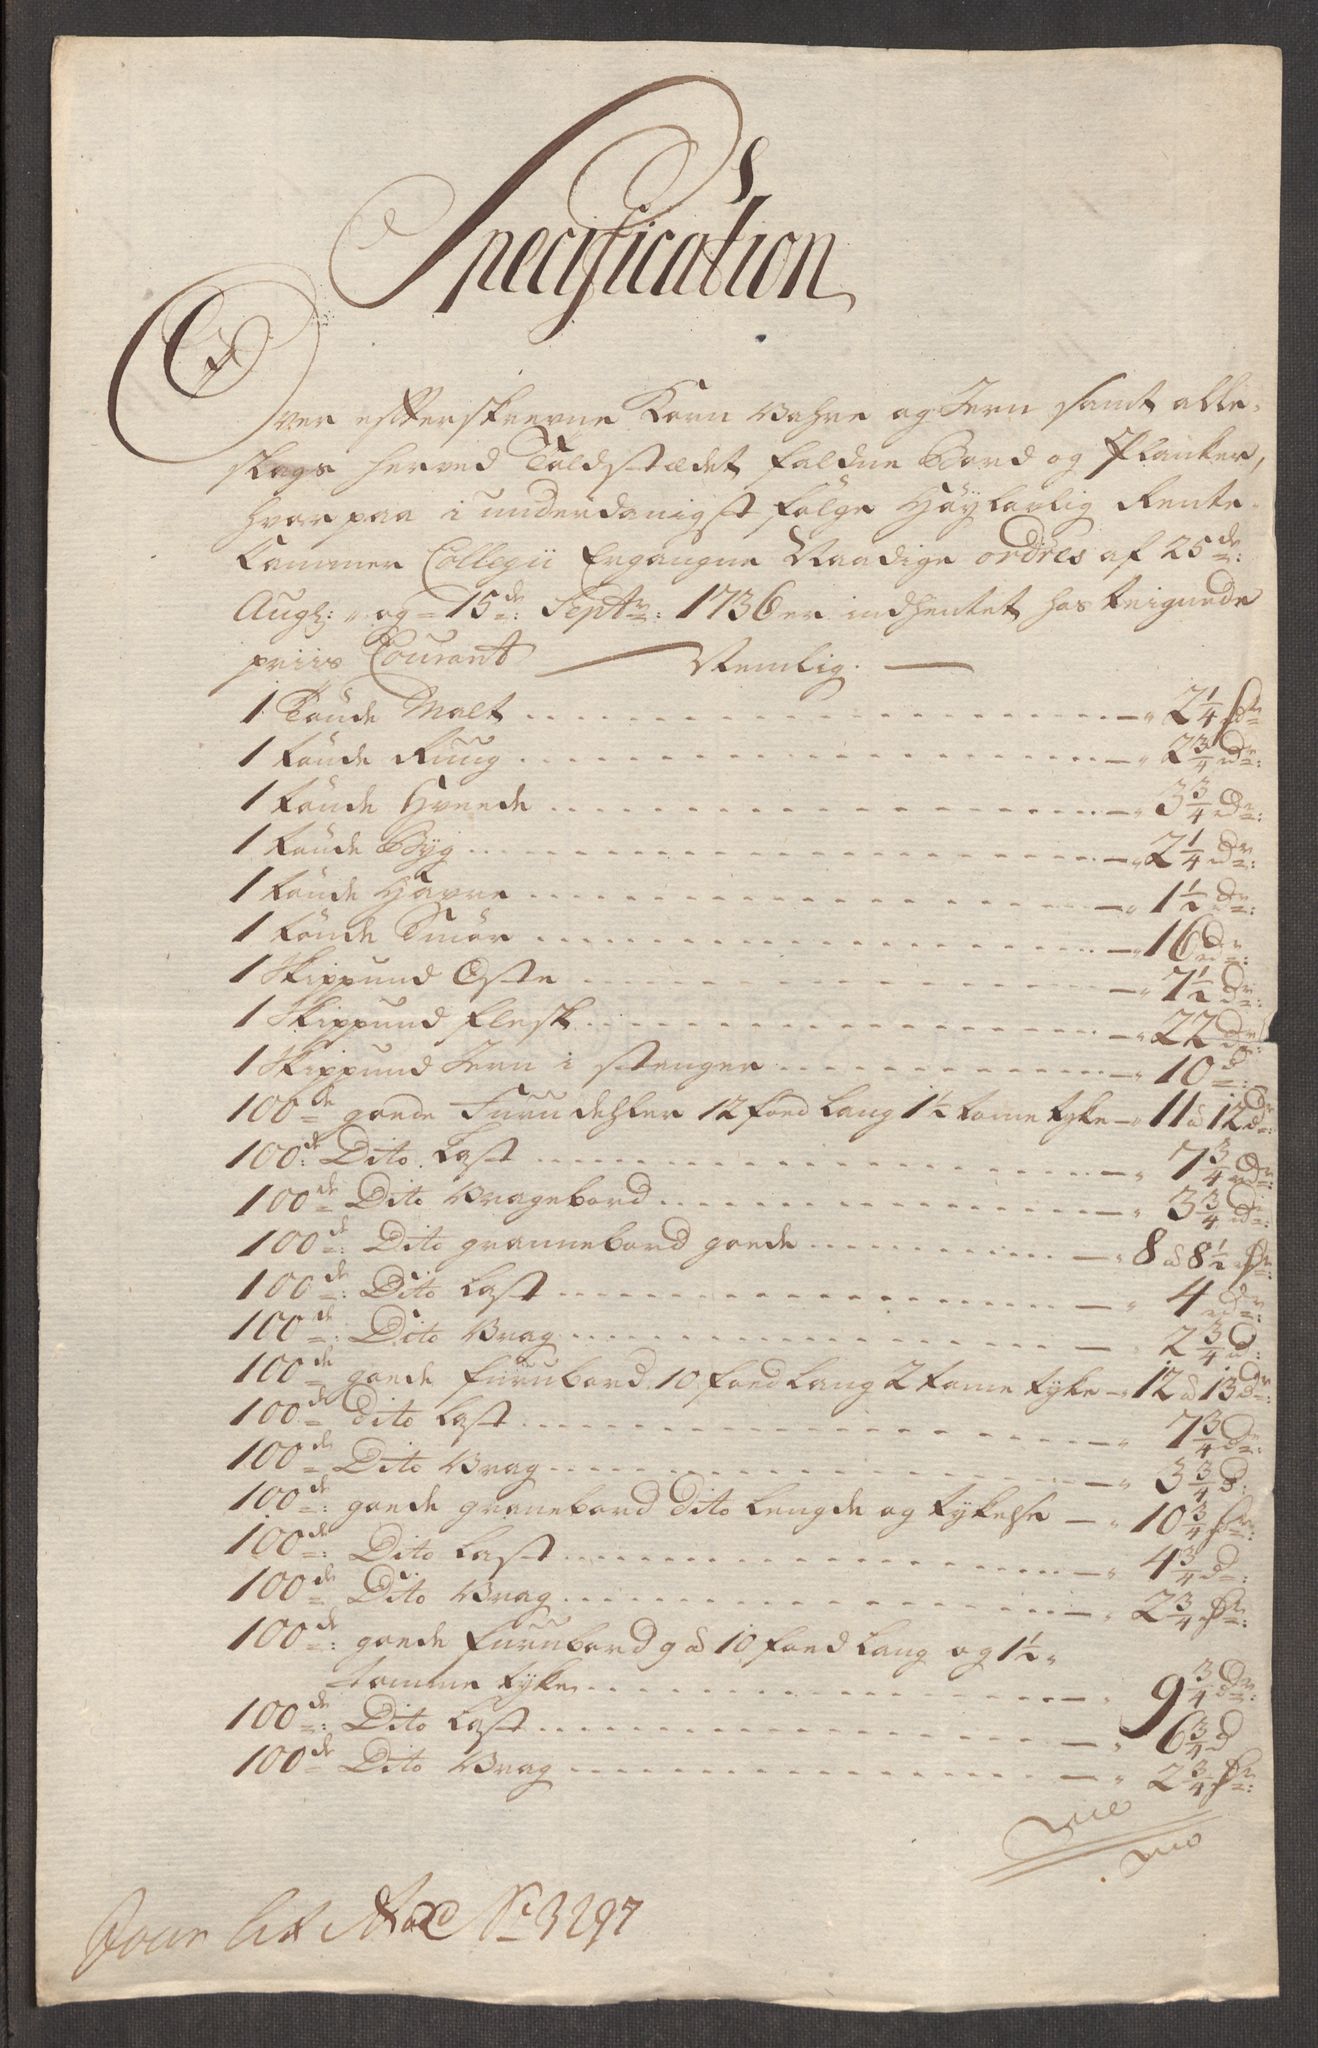 Specification
Over efterskrevne Korn Vahre og Jern samt alle
slags herved Toldstædet faldne Bord og Planker,
hvorpaa i underdanigst følge Høylovlig Rente
Cammer Collegii Ergangne Naadige ordres af 25de
AugH: og 15de: Septr: 1736 er indhentet hos teignede
priis Courant Nemlig.
1 Tønde Malt 2 1/4 dr
1 tønde Rug 2 3/4 dr:
1 tønde Hveede 3 3/4 dr:
1 tønde Byg 2 1/4 dr:
1 tønde Havre 1 1/2 dr:
1 tønde Smør 16 dr:
1 Skippund Oste 7 1/2 dr:
1 Skippund flesk 22 dr:
1 Skippund Jern i stenger 10 d:
100de goede Furu dehler 12 foed lang 1 1/2 tome tyke 11 à 12 dr:
100de: Dito Last 7 3/4 dr:
100de Dito Vragebord 3 3/4 dr:
100de: Dito grannebord goede 8 à 8 1/2 dr:
100de: Dito Last 4 dr:
100de: Dito Vrag 2 3/4 d:
100de goede furubord 10 foed lang 2 tome tyke 12 à 13 dr:
100de dito Last 7 3/4 dr:
100de Dito Vrag 3 3/4 d:
100de: goede granebord dito lengde og tykelse 10 3/4 dr:
100de: Dito Last 4 3/4 d:
100de Dito Vrag 2 3/4 dr:
100de: goede furubord 9 à 10 foed lang og 1 1/2
tomme tyke 9 3/4 dr:
100de: Dito Last 6 3/4 d
100de Dito Vrag 2 3/4 dr:
No 3297